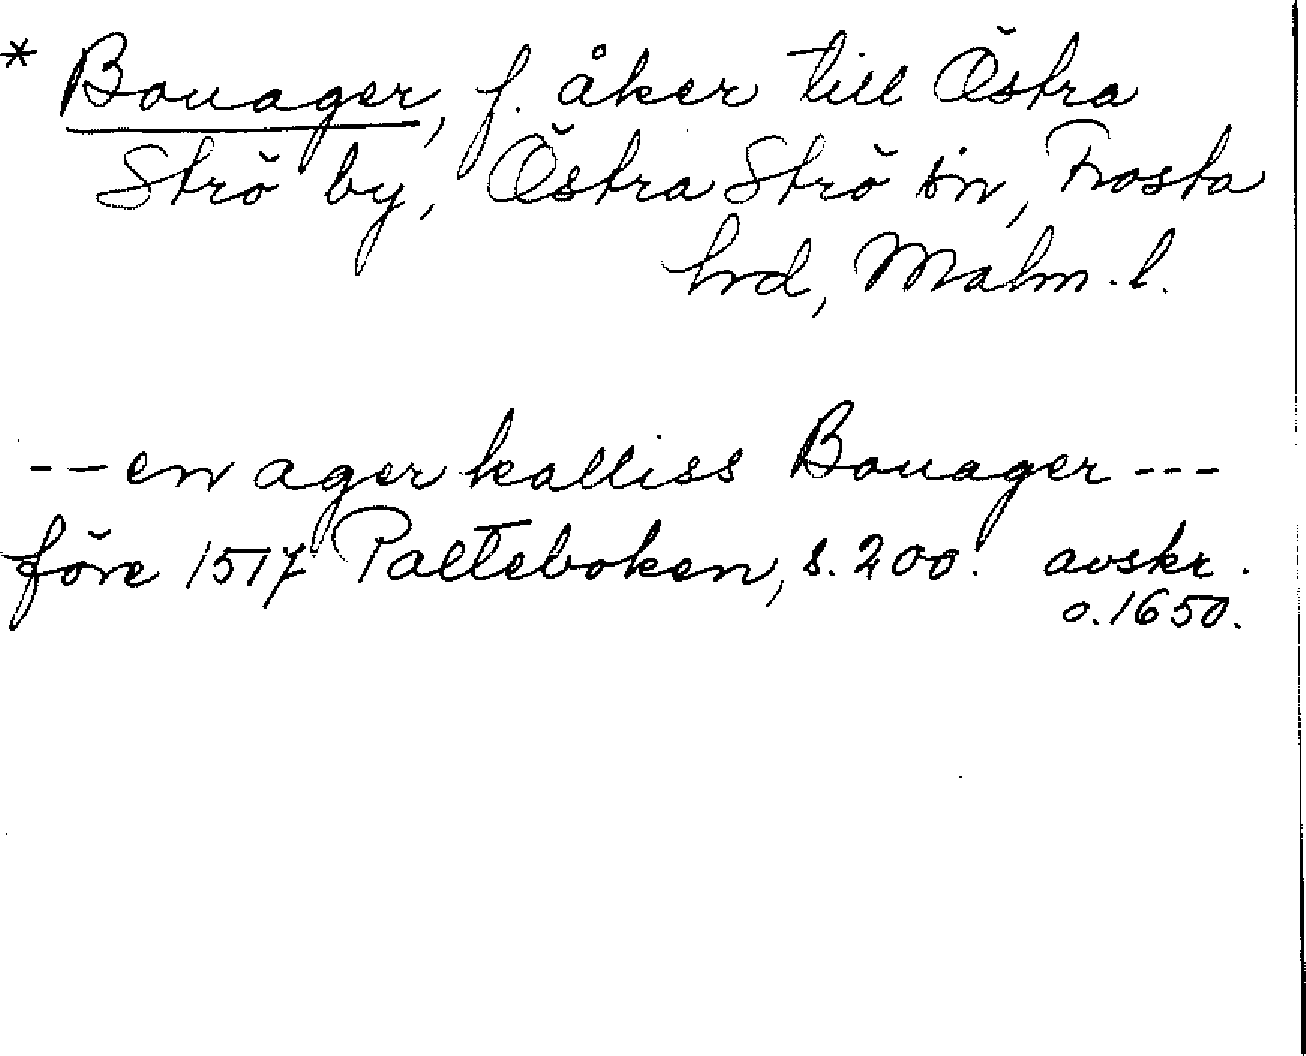 * Bouager, f. åker till Östra
Strö by, Östra Strö sn, Frosta
hrd, Malm. l.
-- en ager kalliss Bouager ---
före 1517 Palteboken, s. 200. avskr.
o. 1650.